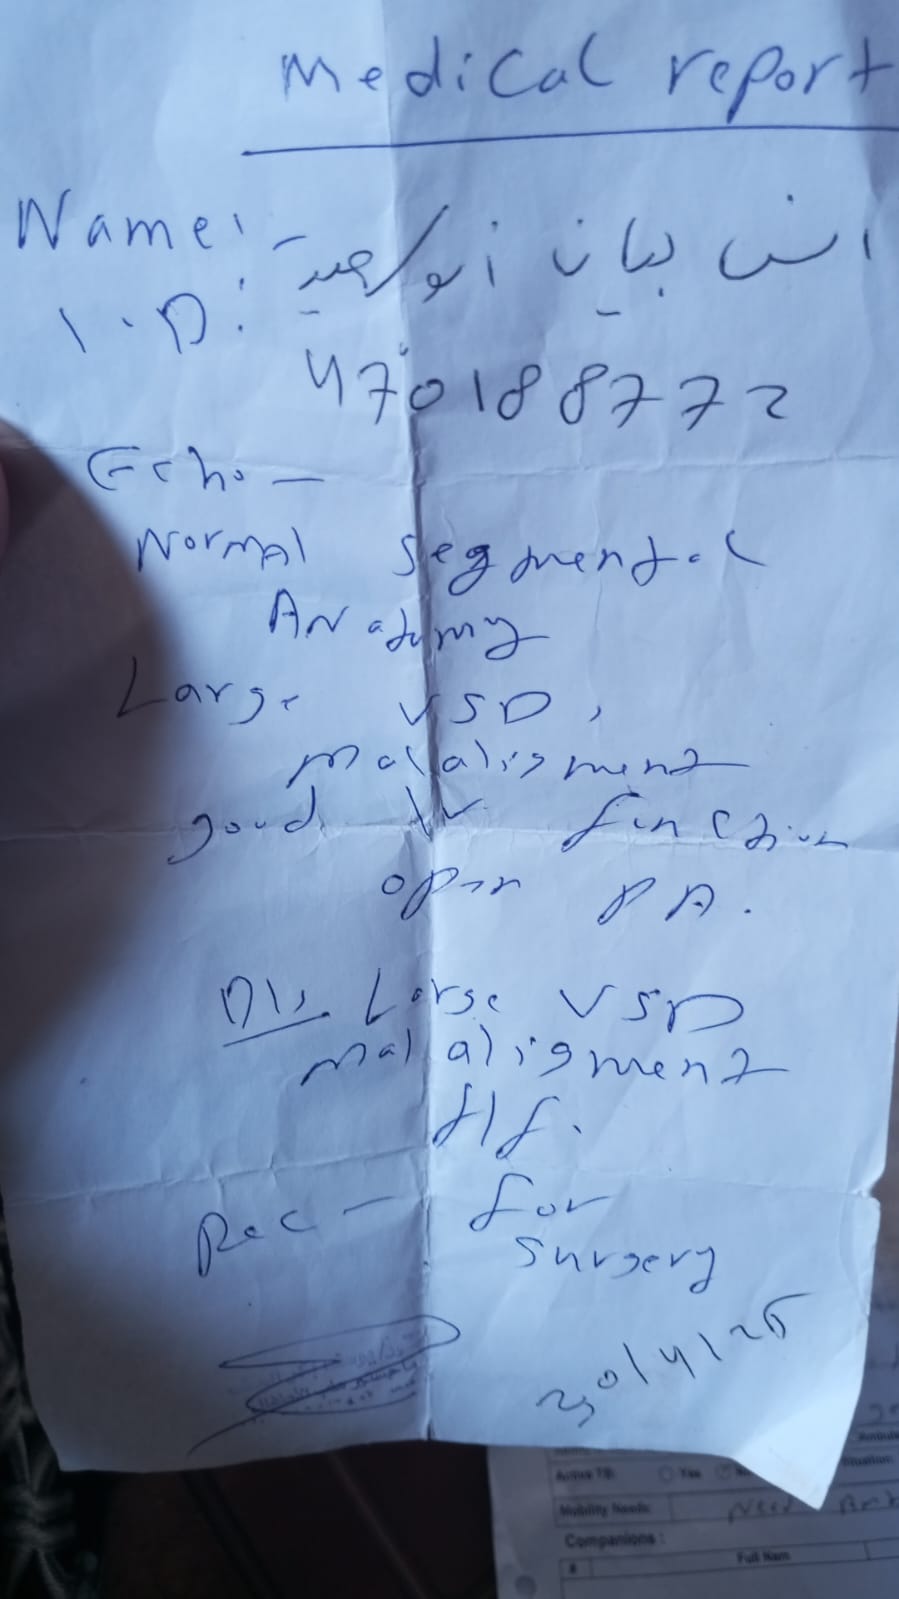 Medical report
Name:-
I.D: 470188772
Echo-
Normal Segmental
Anatomy
Large VSD,
malaligment
good LV function
open PA.
D/s Large VSD
malaligment
Rec- for
surgery
30/4/25
Active TB: Yes
Mobility Needs: Need
Companions :
# Full Nam